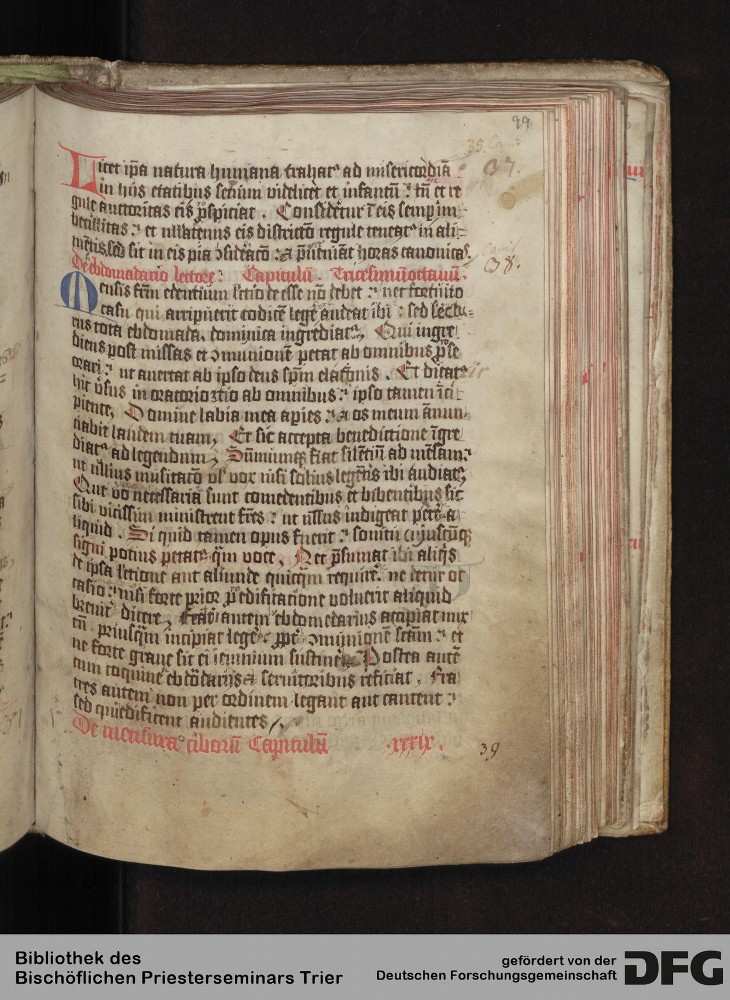 99
35. Cam
37.
Licet ip̄a natura humana trahatᷣ ad misericordiā
in hijs etatibus senum videlicet et infantū : tn̄ et re
gule auctoritas eis ꝓspiciat . Consideretur ī eis semp im
becillitas : et nullatenus eis districtō regule teneatᷣ in ali
mētis, sed sit in eis pia ↄsideracō : ⁊ p̄ueniāt horas canonicas.
De ebdomadario lectore : Capitulū . Tricesimū octauū .
38.
Mensis fr̄m edentium lectio deesse nō debet : nec fortuito
casu qui arripuerit codicē legē audeat ibi : sed lectu
rus tota ebdomada, dominica ingrediatᷣ, Qui ingre
diens post missas et ↄmunionē petat ab omnibus ꝓ se
orari : ut auertat ab ipso deus sp̄m elacōnis . Et dicatᷣ
hic v̓sus in oratorio tcio ab omnibus : ipso tamen īci
piente, Domine labia mea aperies : ⁊ os meum ānun
ciabit laudem tuam, Et sic accepta benedictione īgre
diatᷣ ad legendum, Sūmumqꝫ fiat silentiū ad mēsam :
ut nullius musitacō vl̓ vox nisi solius legētis ibi audiatᷣ,
Que v̓o necessaria sunt comedentibus et bibentibus sic
sibi vicissim ministrent fr̄es : ut nullus indigeat petē a
liquid . Si quid tamen opus fuerit : sonitu cujuscūqꝫ
signi potius petatᷣ qͫ̄ voce, Nec p̄sumat ibi aliq̄s
de ipsa lectione aut aliunde quicqͫ̄ requirē . ne detur oc
casio : nisi forte prior ꝓ edificatione voluerit aliquid
breuit̓ dicere, Frat̓ autem ebdomedarius accipiat mix
tū priusqͫ̄ incipiat legē : ꝓpt̓ ↄmunionē scām : et
ne forte graue sit ei ieiunium sustinē, Postea autē
cum coquine ebdōdarijs ⁊ seruitoribus reficiat . Fra
tres autem non per ordinem legant aut cantent :
sed qui edificent audientes,
De mensura ciborū Capitulū .xxxix.
39
Bibliothek des
Bischöflichen Priesterseminars Trier
gefördert von der
Deutschen Forschungsgemeinschaft
DFG